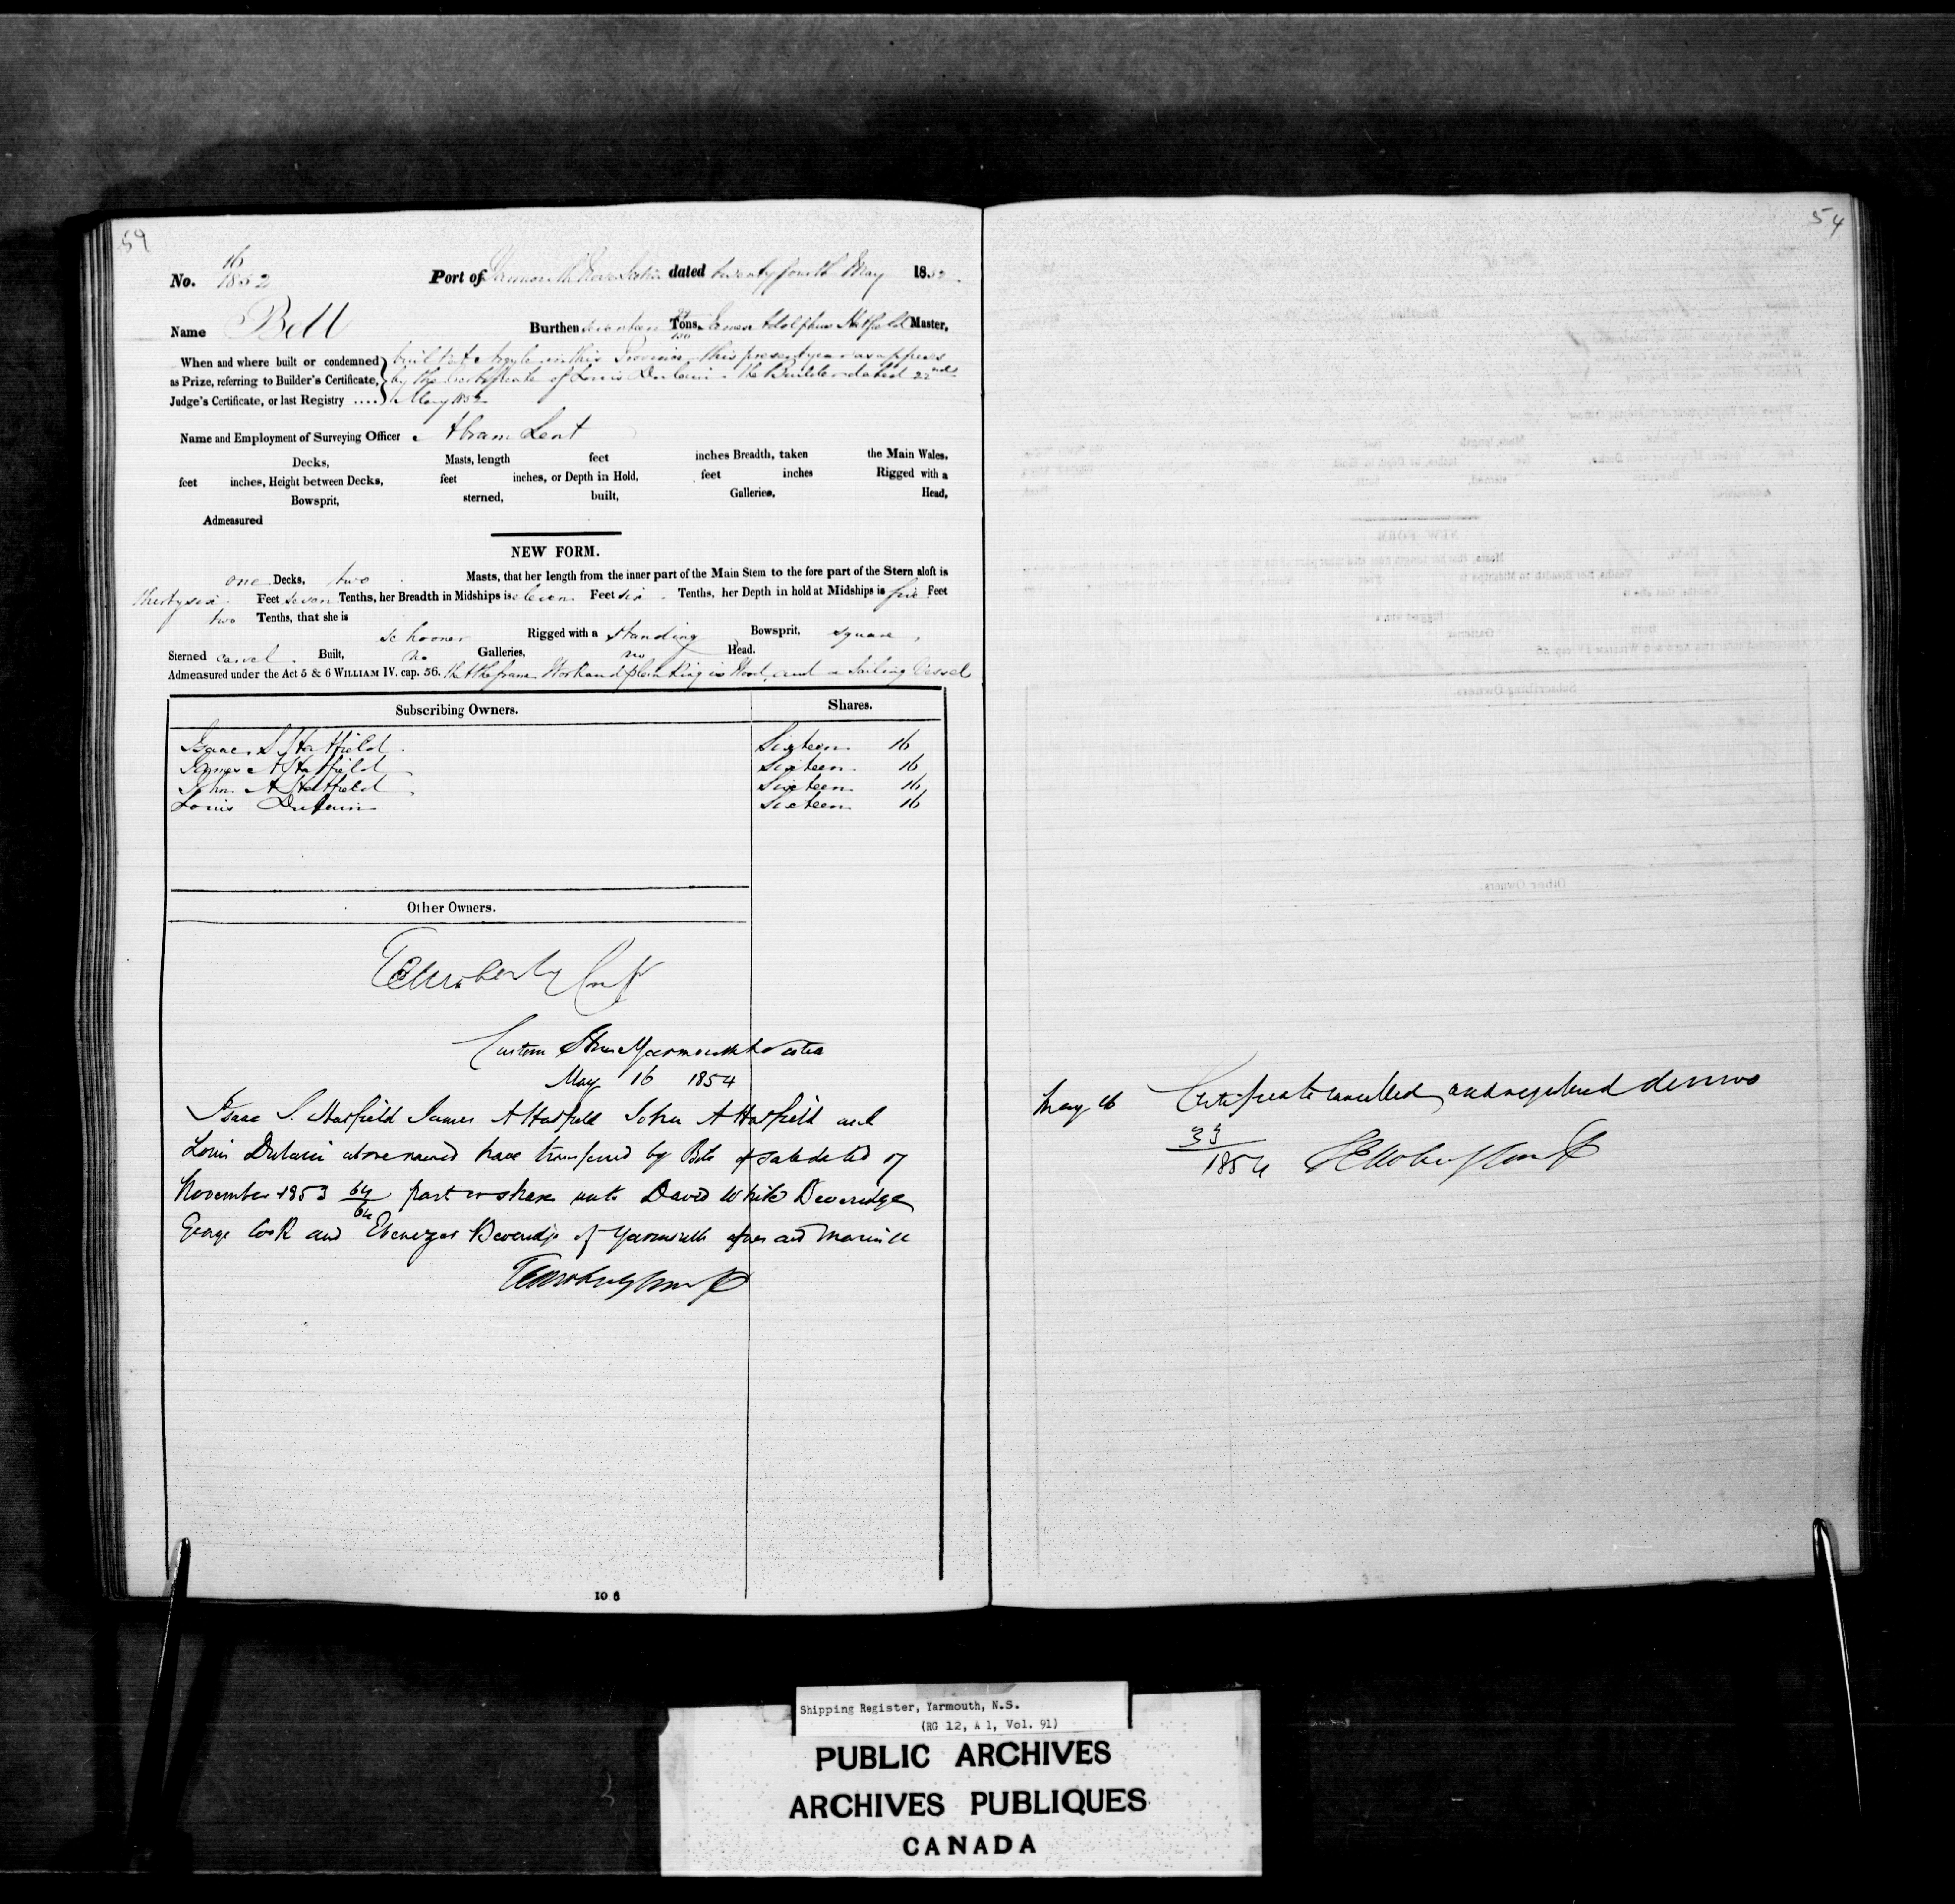 59
No. 16 1852 Port of Yarmouth Nova Scotia dated twenty fourth May 1852
Name Bell Burthen seventeen Tons, James Adolphus Hatfield Master,
When and where built or condemned built at Argyle in this Province this present year as appears
as Prize, referring to Builder's Certificate, by the Certificate of Louis Dulain the Builder dated 22nd
Judge's Certificate, or last Registry .... May 1852
Name and Employment of Surveying Officer Abram Lent
Decks, Masts, length feet inches Breadth, taken the Main Wales,
feet inches, Height between Decks, feet inches, or Depth in Hold, feet inches Rigged with a
Bowsprit, sterned, built, Galleries, Head,
Admeasured
NEW FORM.
one Decks, two Masts, that her length from the inner part of the Main Stem to the fore part of the Stern aloft is
thirty six Feet seven Tenths, her Breadth in Midships is eleven Feet six Tenths, her Depth in hold at Midships is five Feet
two Tenths, that she is
schooner Rigged with a standing Bowsprit, square,
Sterned carvel Built, no Galleries, no Head.
Admeasured under the Act 5 & 6 WILLIAM IV. cap. 56. that the frame Work and planking is Wood, and a Sailing Vessel
Subscribing Owners. Shares.
Isaac S Hatfield Sixteen 16
James A Hatfield Sixteen 16
John A Hatfield Sixteen 16
Louis Dulain Sixteen 16
Other Owners.
Custom House Yarmouth
May 16 1854
Isaac S. Hatfield James A Hatfield John A Hatfield and
Louis Dulain above named have transferred by Bill of sale dated 07
November 1853 64/64 part or shares unto David White Beveridge
George Cook and Ebenezer Beveridge of Yarmouth
10 6
54
May 16 Certificate cancelled and registered de novo
33/1854
Shipping Register, Yarmouth, N.S.
(RG 12, A 1, Vol. 91)
PUBLIC ARCHIVES
ARCHIVES PUBLIQUES
CANADA